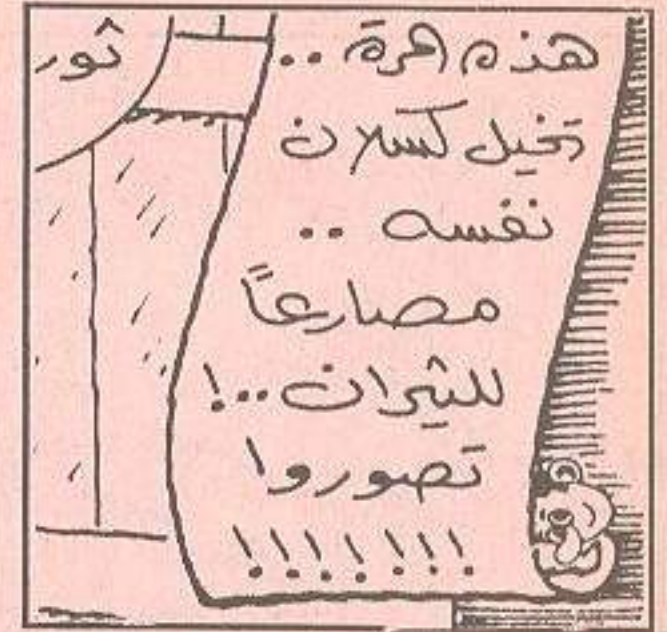 هذه المرة ..
تخيل كسلان
نفسه ..
مصارعاً
للثيران ..!
تصوروا
!!!!!!!
ثور